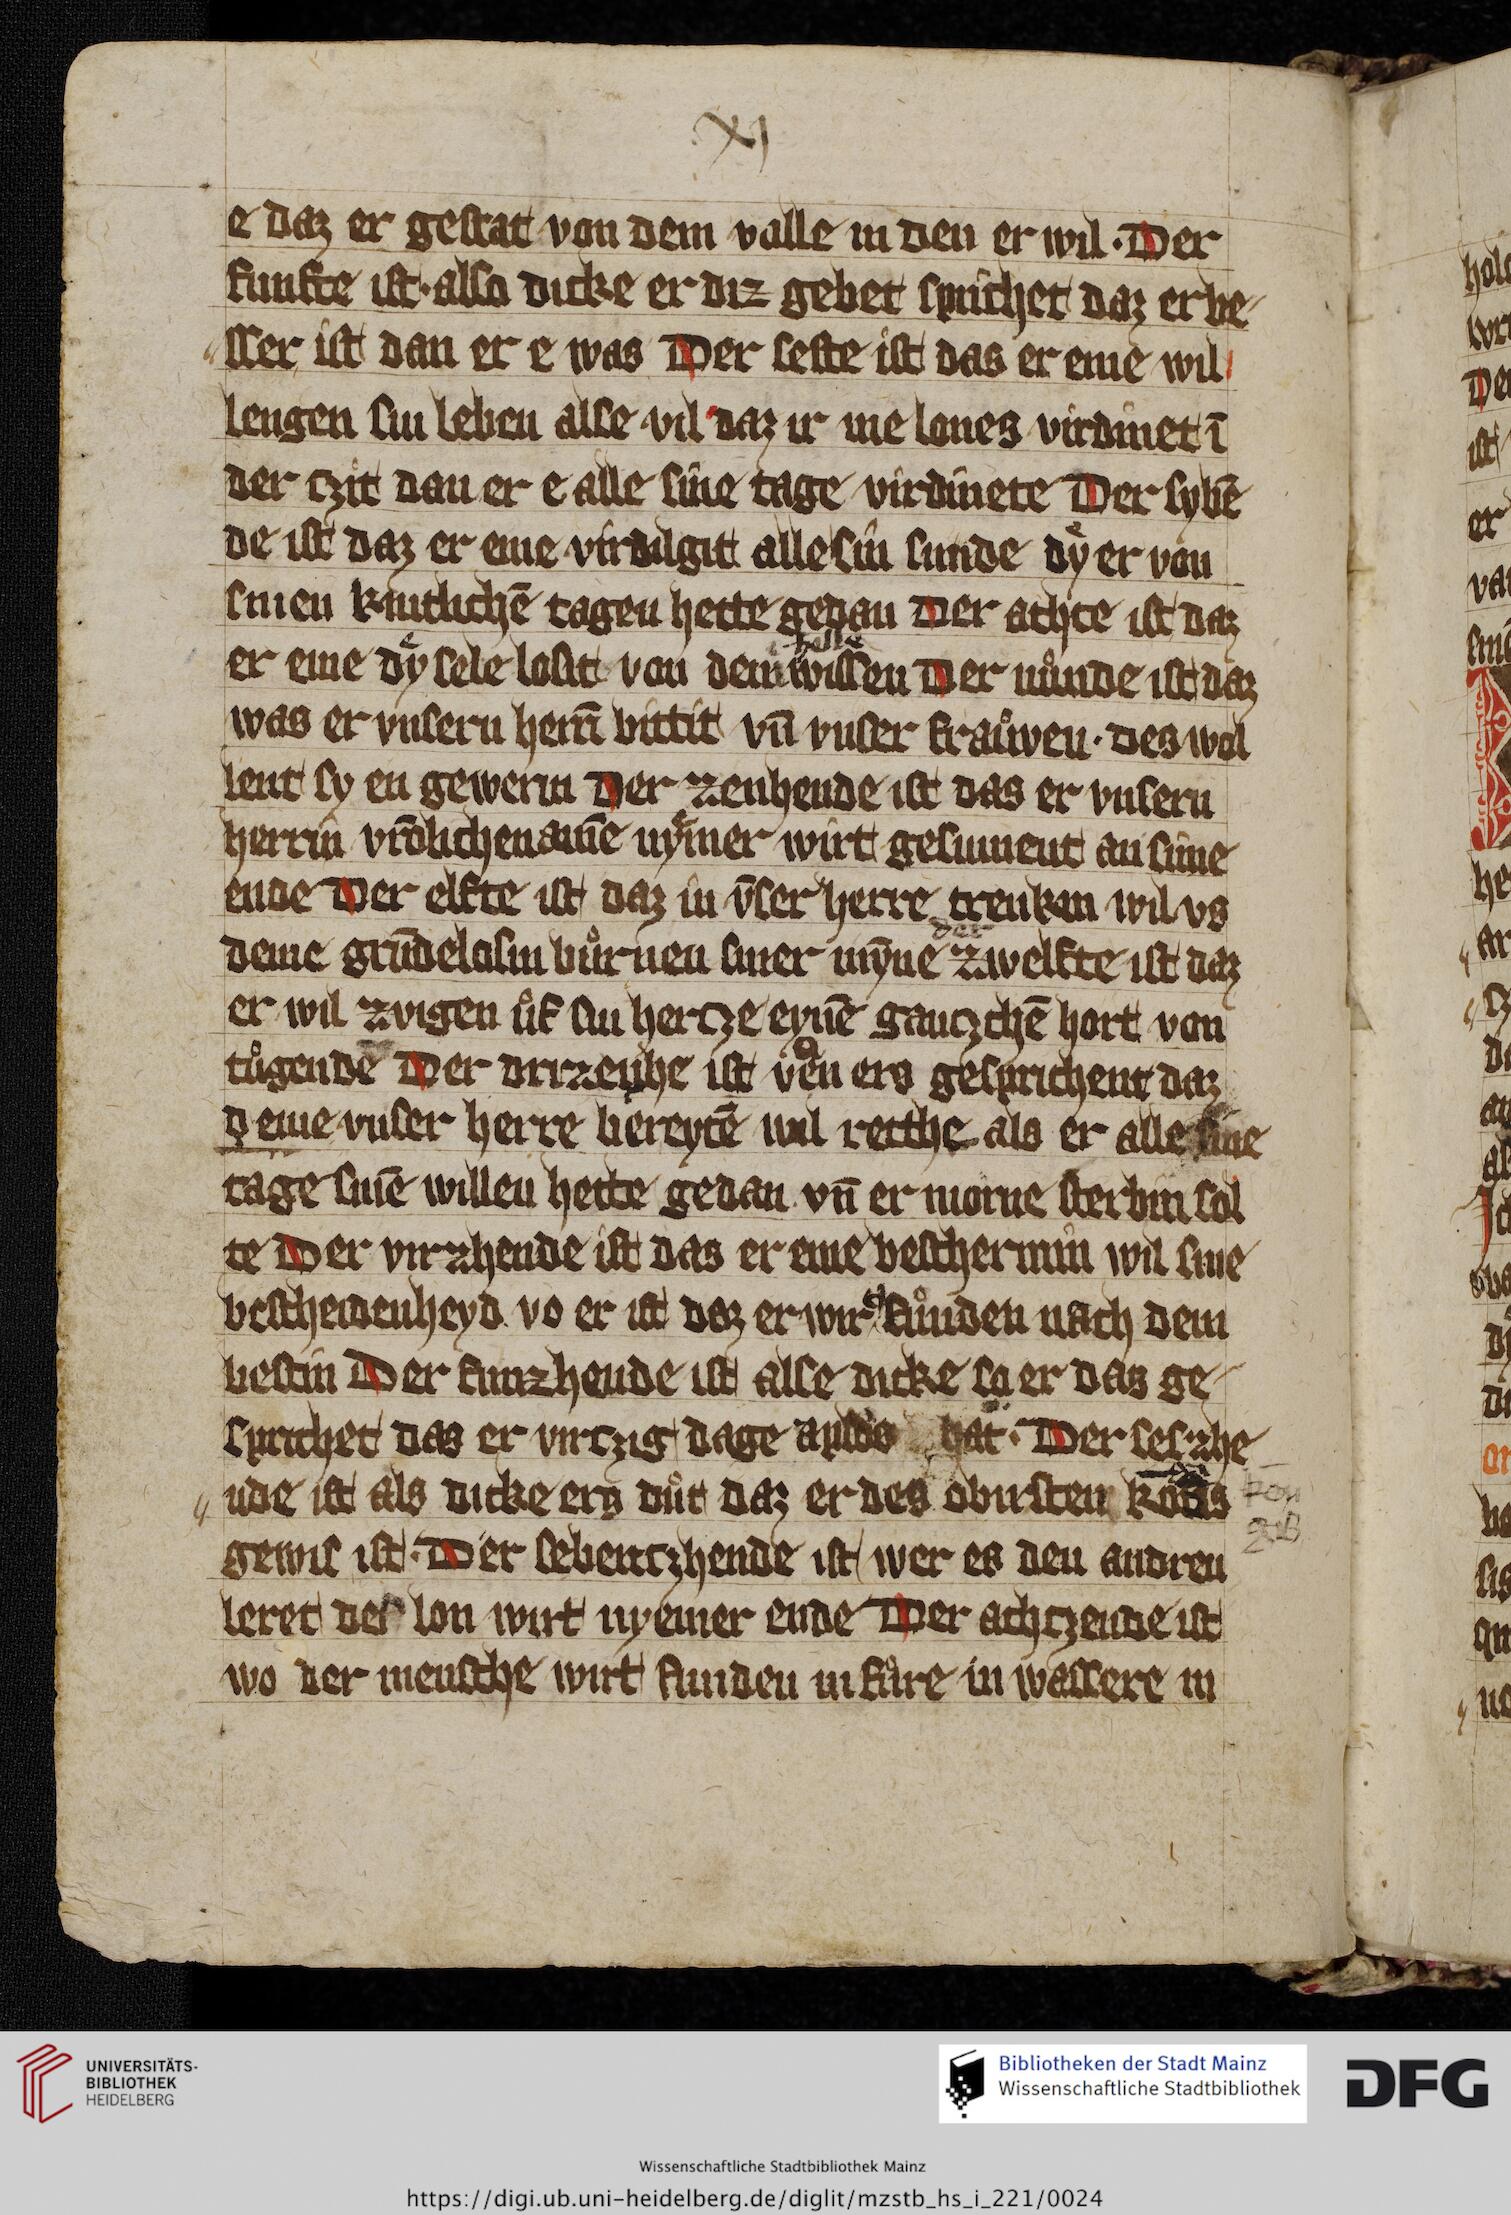 xj
e daz er gestat von dem valle in den er wil · Der
funfte ist · also dicke er diz gebet sprichet daz er be-
sser ist dan er e was Der seste ist das er eme wil
lengen sin leben alse vil daz ir me lones virdinet ī
der czit dan er e alle sine tage virdinete Der sybē
de ist daz er eme virdilgit alle sin sunde dyͤ er von
sinen kintlichē tagen hette gedan Der athte ist daz
helle
er eme dyͤ sele losit von dem wissen Der nuͦnde ist daz
was er vnsern hern̄ bittit vn̄ vnser frauͦwen · des wol
lent sy en gewerin Der zenhende ist das er vnsern
herrin vr̄olichen nyͤmer wirt gesument an sime
ende Der elfte ist daz in v̄ser herre trenkin wil vs
der
deme grūdelosin buͦrnen siner mȳne zwelfte ist daz
er wil zvigen uͦf sin hercze eynē ganczchē hort von
tuͦgende Der drizenhe ist ers gesprichent daz
deme vnser herre bereytē wil retthe als er alle sine
tage sinē willen hette gedan vn̄ er morne sterbin sol
te Der virzhende ist das er eme beschermin wil sine
bescheidenheyd vo er ist daz er wirt fuͦnden nach dem
bestin Der funzhende ist alse dicke so er das ge-
sprichet das er virczig dage aplos hat · Der seszhe
nde ist als dicke ers duͦt daz er des obirsten
gewis ist · Der sebentczhende ist wer es den andren
leret des lon wirt nyemer ende Der achtzende ist
wo der mensche wirt funden in fuͦre in wassere in
UNIVERSITÄTS-
BIBLIOTHEK
HEIDELBERG
Bibliotheken der Stadt Mainz
Wissenschaftliche Stadtbibliothek
DFG
Wissenschaftliche Stadtbibliothek Mainz
https://digi.ub.uni-heidelberg.de/diglit/mzstb_hs_i_221/0024